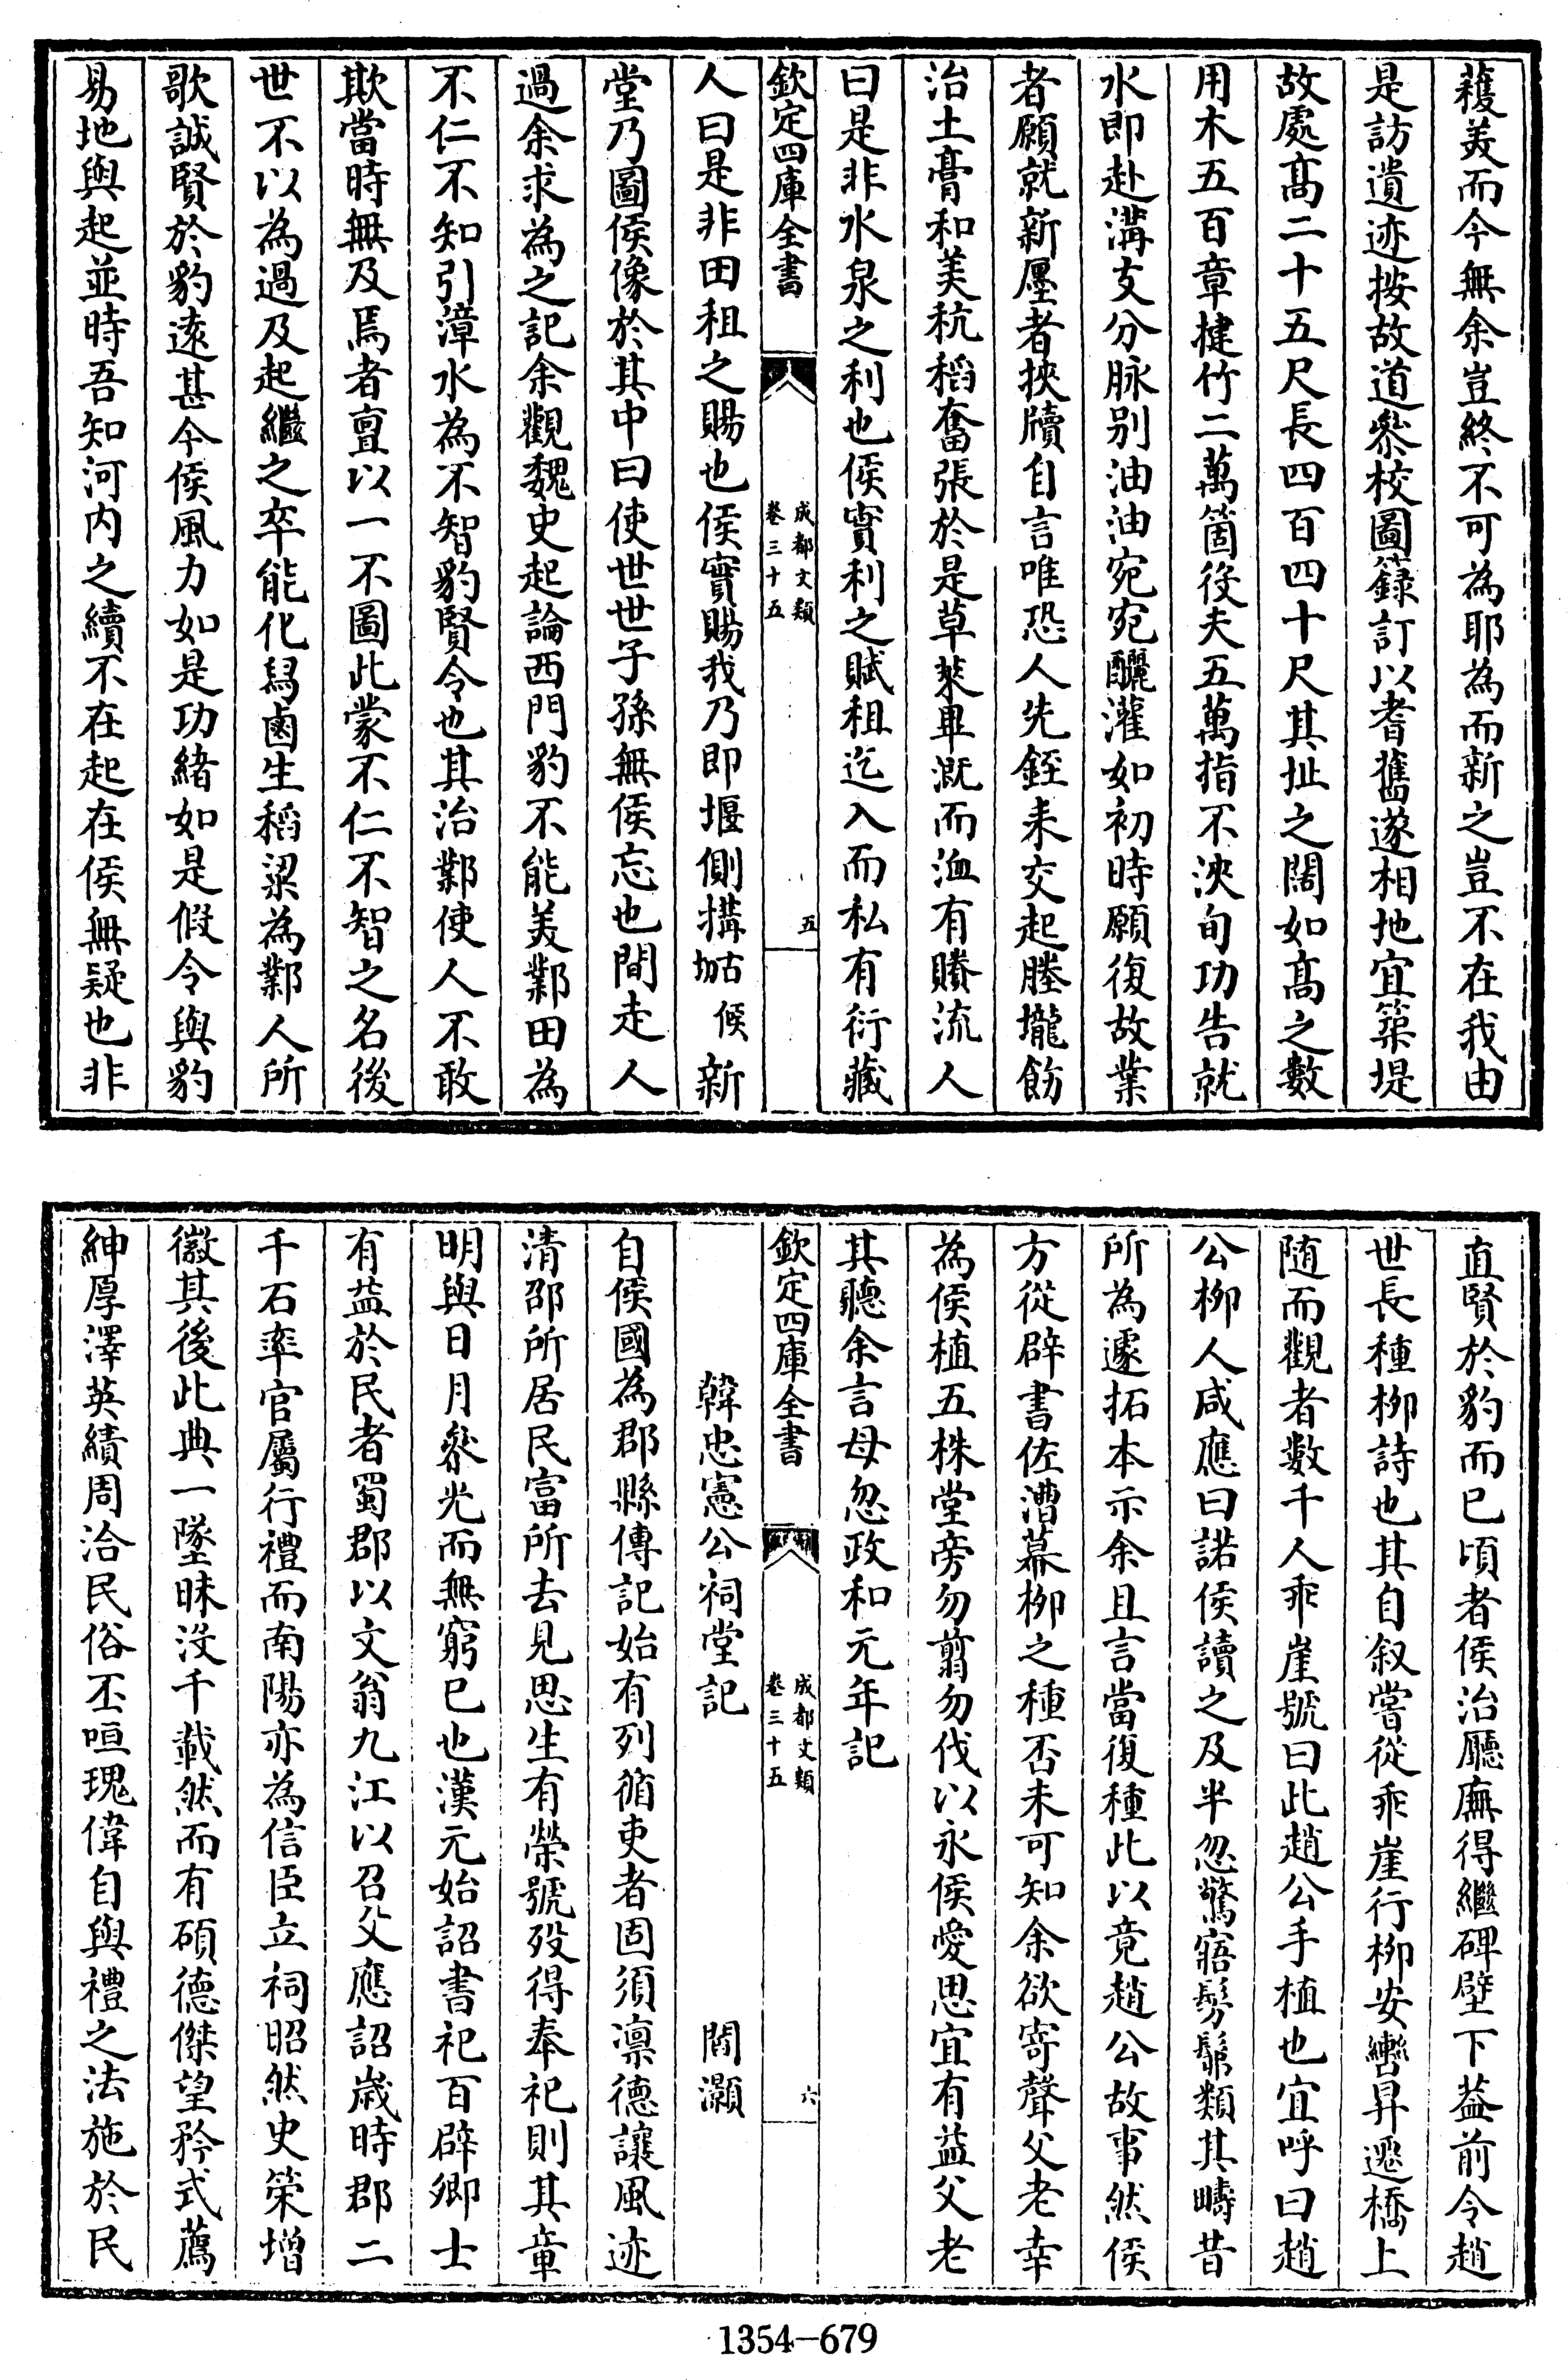 穫美而今無余豈終不可為耶為而新之豈不在我由
是訪遺迹按故道叅校圖籙訂以耆舊遂相地宜築堤
故處髙二十五尺長四百四十尺其址之闊如髙之數
用木五百章揵竹二萬箇役夫五萬指不浹旬功告就
水即赴溝支分脉别油油宛宛釃灌如初時願復故業
者願就新㕓者挾牘自言唯恐人先銍耒交起塍壠飭
治土膏和美秔稻奮張於是草萊畢溉而洫有賸流人
曰是非水泉之利也侯實利之賦租迄入而私有衍藏
欽定四庫全書
成都文類
卷三十五
五
人曰是非田租之賜也侯實賜我乃即堰側搆㘭候新
堂乃圖侯像於其中曰使世世子孫無侯忘也間走人
過余求為之記余觀魏史起論西門豹不能美鄴田為
不仁不知引漳水為不智豹賢令也其治鄴使人不敢
欺當時無及焉者亶以一不圖此蒙不仁不智之名後
世不以為過及起繼之卒能化舄鹵生稻粱為鄴人所
歌誠賢於豹逺甚今侯風力如是功緒如是假令與豹
易地與起並時吾知河内之續不在起在侯無疑也非
直賢於豹而已頃者侯治廳廡得繼碑壁下葢前令趙
世長種栁詩也其自叙嘗從乖崖行栁安轡昇遷橋上
随而觀者数千人乖崖號曰此趙公手植也宜呼曰趙
公栁人咸應曰諾侯讀之及半忽驚寤髣髴類其疇昔
所為遽拓本示余且言當復種此以竟趙公故事然侯
方從辟書佐漕幕栁之種否未可知余欲寄聲父老幸
為侯植五株堂旁勿翦勿伐以永侯愛思宜有益父老
其聽余言毋忽政和元年記
欽定四庫全書
成都文類
卷三十五
六
韓忠憲公祠堂記　閻灝
自侯國為郡縣傳記始有列循吏者固須凛德讓風迹
清邵所居民富所去見思生有榮號殁得奉祀則其章
明與日月叅光而無窮已也漢元始詔書祀百辟卿士
有益於民者蜀郡以文翁九江以召父應詔歲時郡二
千石率官屬行禮而南陽亦為信臣立祠昭然史䇿增
徽其後此典一墜昧没千載然而有碩德傑望矜式薦
紳厚澤英績周洽民俗丕咺瑰偉自與禮之法施於民
1354—679